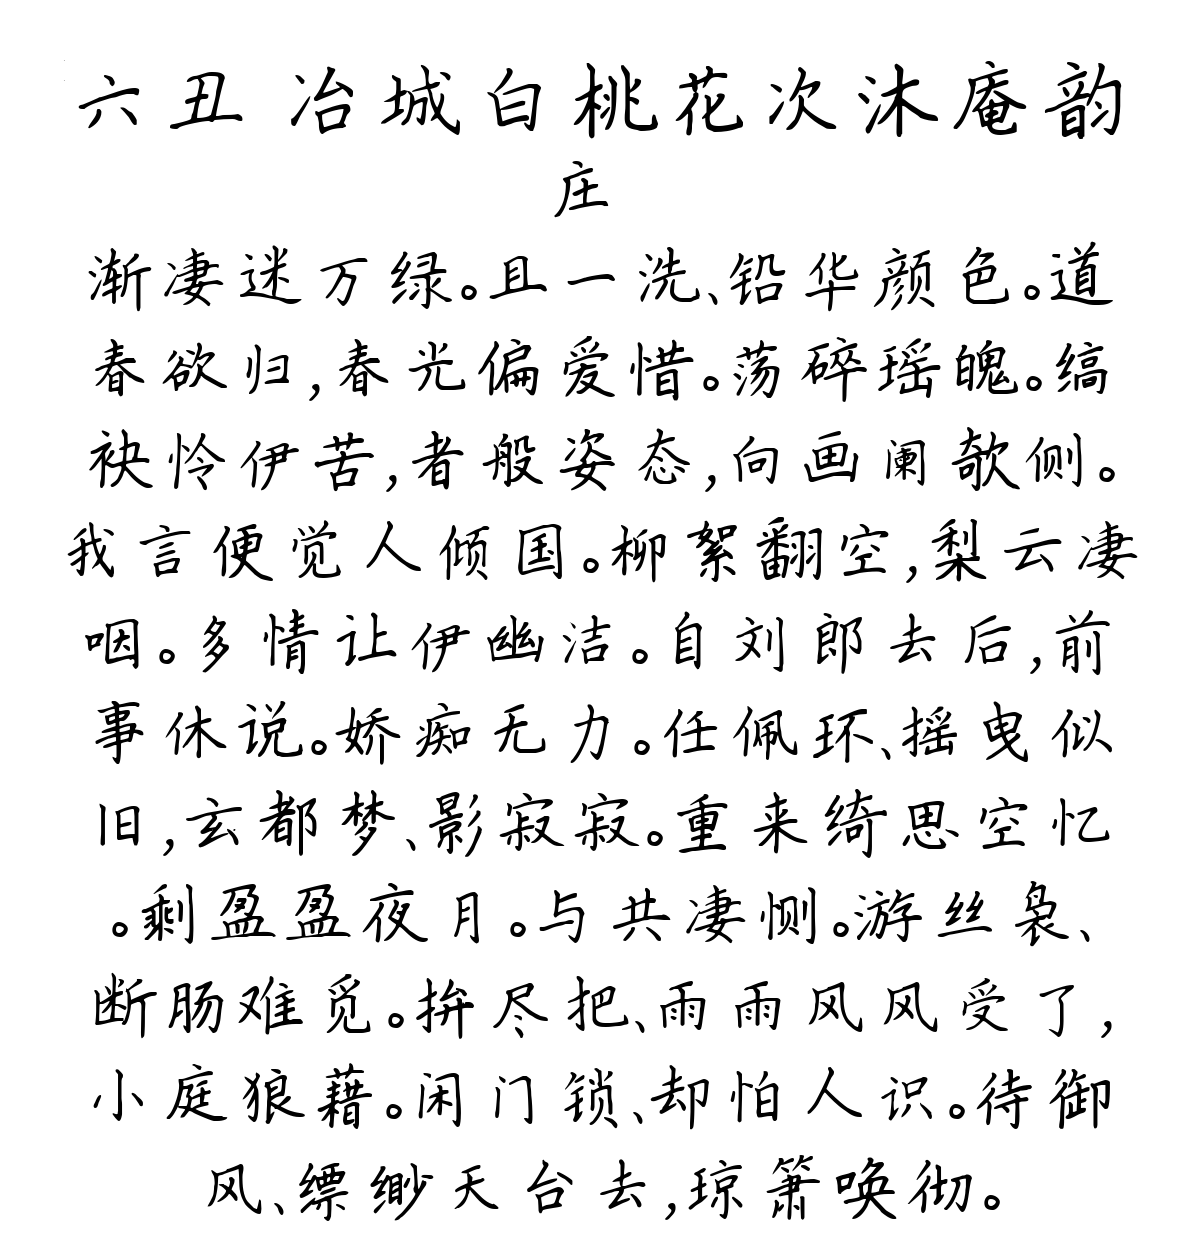 六丑 冶城白桃花次沐庵韵
庄
渐凄迷万绿。且一洗、铅华颜色。道
春欲归,春光偏爱惜。荡碎瑶魄。缟
袂怜伊苦,者般姿态,向画阑欹侧。
我言便觉人倾国。柳絮翻空,梨云凄
咽。多情让伊幽洁。自刘郎去后,前
事休说。娇痴无力。任佩环、摇曳似
旧,玄都梦、影寂寂。重来绮思空忆
。剩盈盈夜月。与共凄恻。游丝袅、
断肠难觅。拚尽把、雨雨风风受了,
小庭狼藉。闲门锁、却怕人识。待御
风、缥缈天台去,琼箫唤彻。